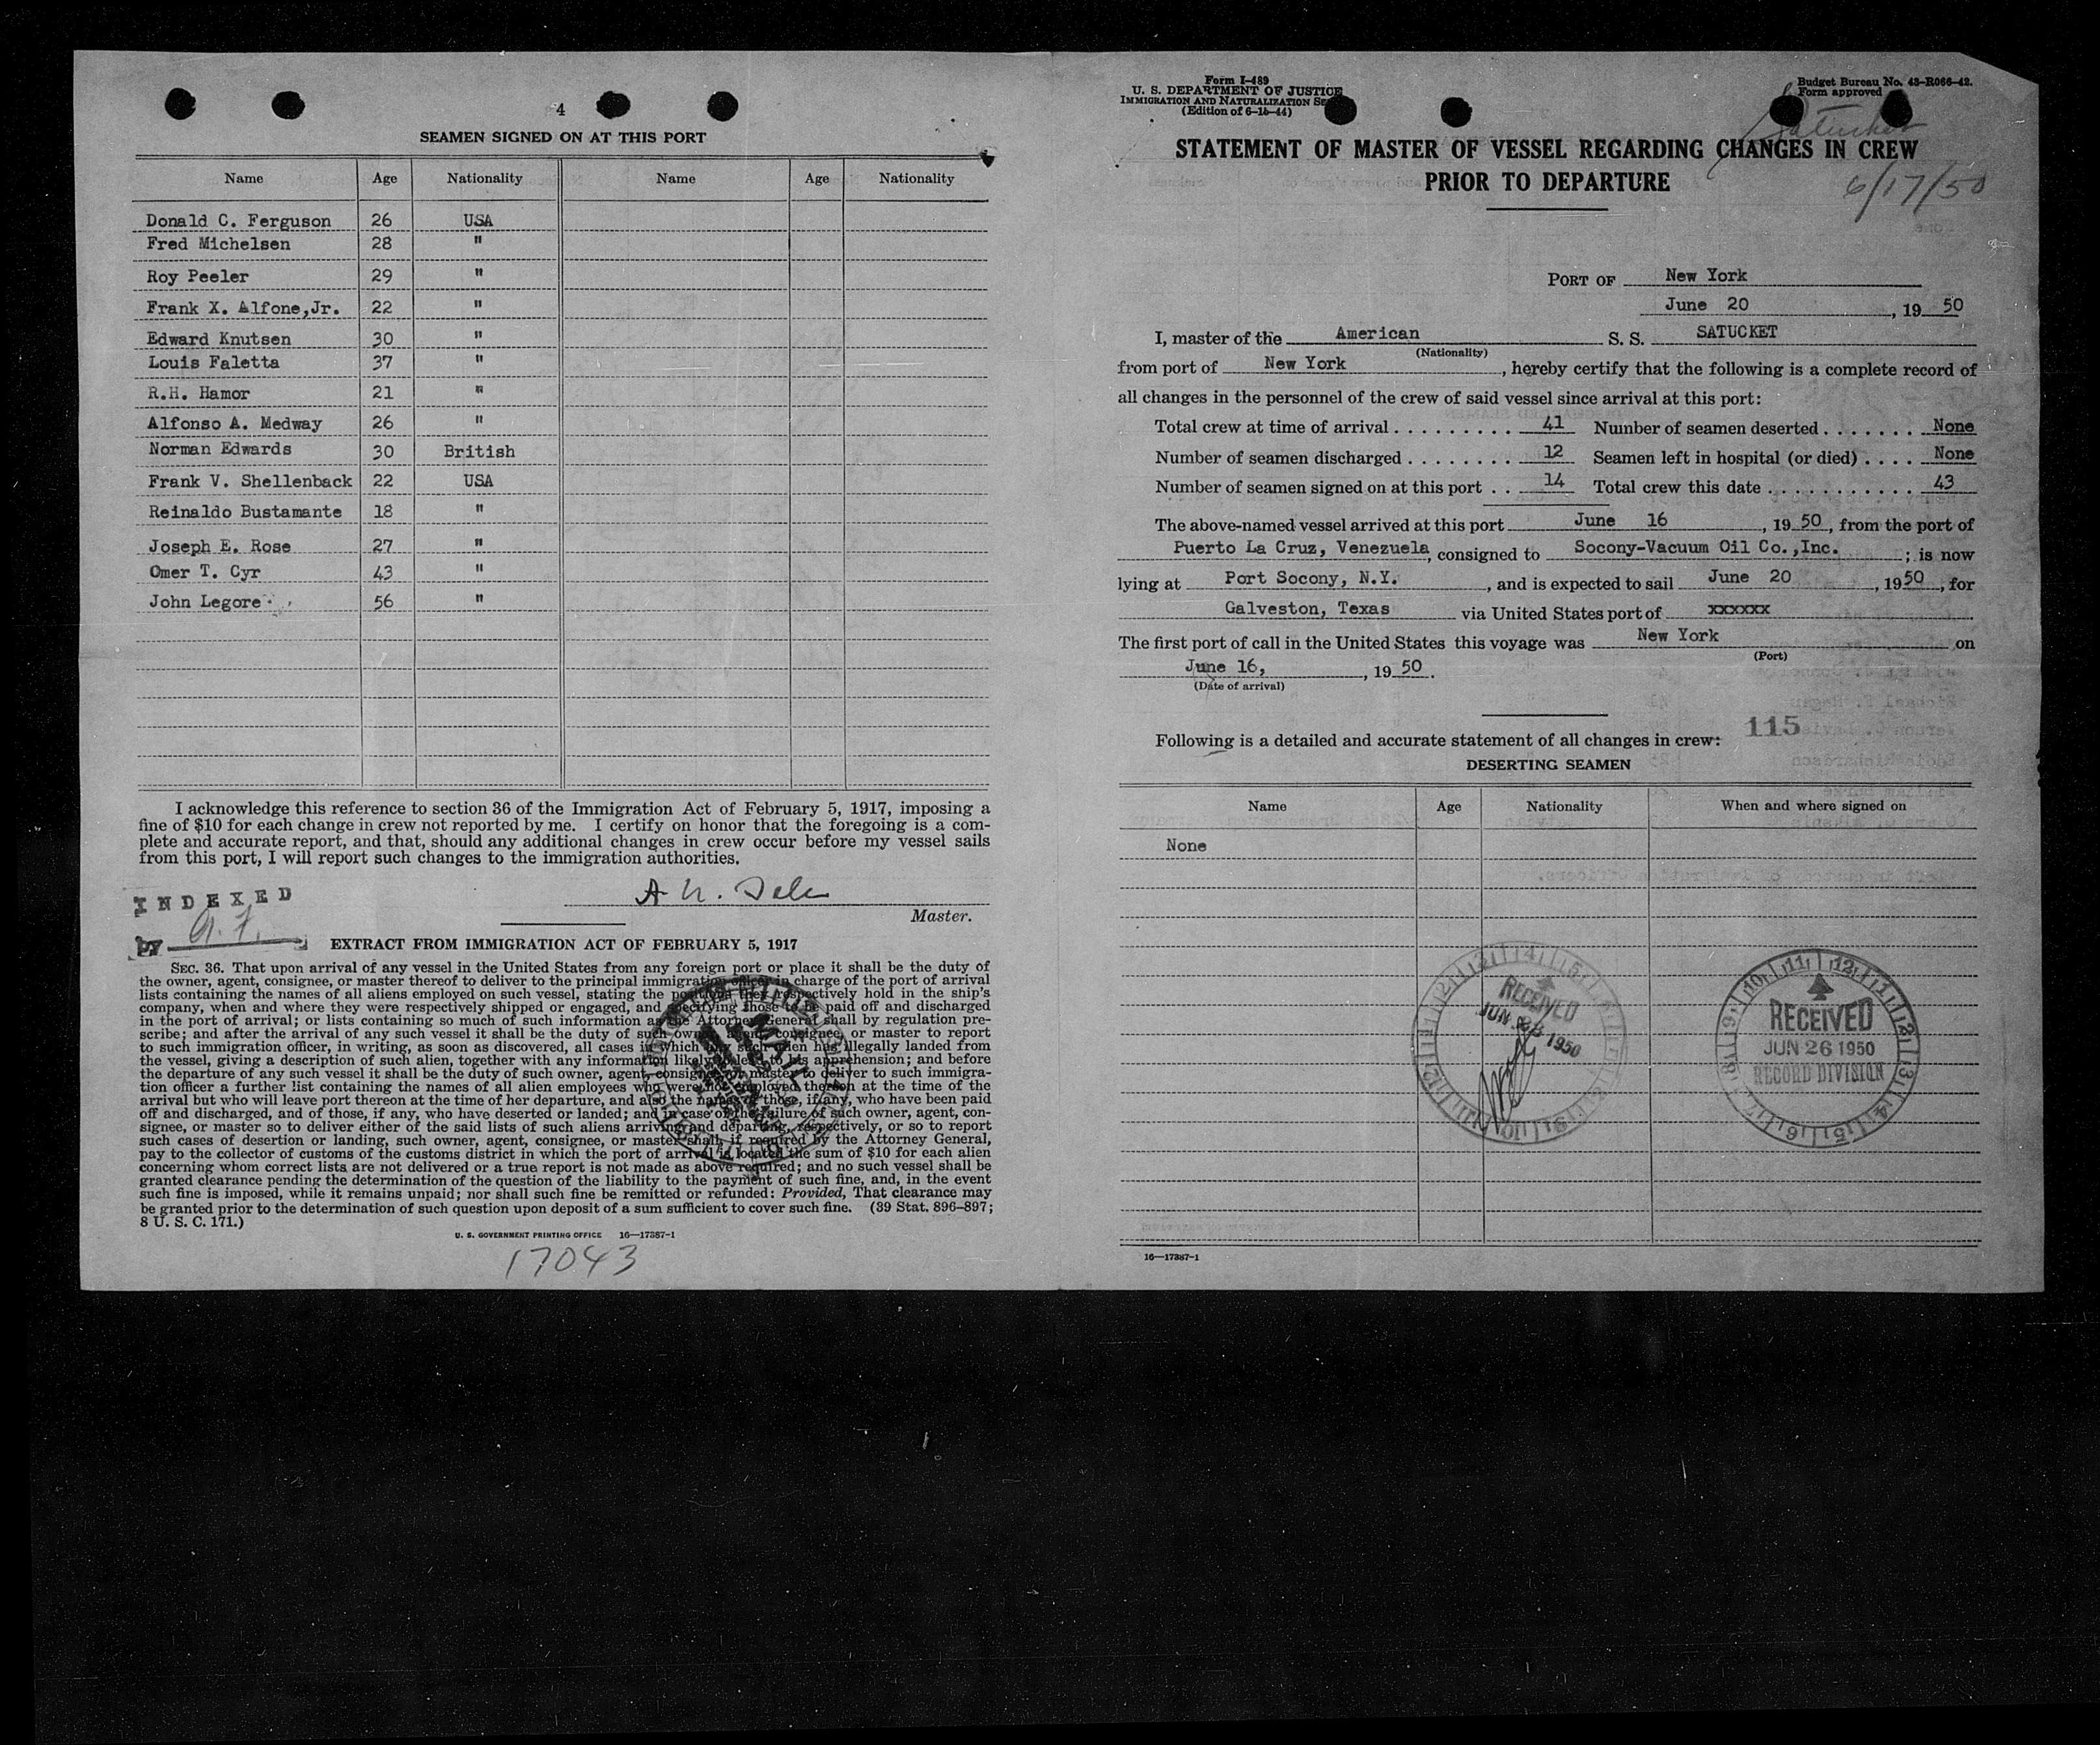 4
SEAMEN SIGNED ON AT THIS PORT
Name Age Nationality Name Age Nationality
Donald C. Ferguson 26 USA
Fred Michelsen 28 "
Roy Peeler 29 "
Frank X. Alfone,Jr. 22 "
Edward Knutsen 30 "
Louis Faletta 37 "
R.H. Hamor 21 "
Alfonso A. Medway 26 "
Norman Edwards 30 British
Frank V. Shellenback 22 USA
Reinaldo Bustamante 18 "
Joseph E. Rose 27 "
Omer T. Cyr 43 "
John Legore 56 "
I acknowledge this reference to section 36 of the Immigration Act of February 5, 1917, imposing a
fine of $10 for each change in crew not reported by me. I certify on honor that the foregoing is a com-
plete and accurate report, and that, should any additional changes in crew occur before my vessel sails
from this port, I will report such changes to the immigration authorities.
INDEXED
by
Master.
EXTRACT FROM IMMIGRATION ACT OF FEBRUARY 5, 1917
SEC. 36. That upon arrival of any vessel in the United States from any foreign port or place it shall be the duty of
the owner, agent, consignee, or master thereof to deliver to the principal immigration officer in charge of the port of arrival
lists containing the names of all aliens employed on such vessel, stating the positions they respectively hold in the ship's
company, when and where they were respectively shipped or engaged, and specifying those to be paid off and discharged
in the port of arrival; or lists containing so much of such information as the Attorney General shall by regulation pre-
scribe; and after the arrival of any such vessel it shall be the duty of such owner, agent, consignee, or master to report
to such immigration officer, in writing, as soon as discovered, all cases in which any such alien has illegally landed from
the vessel, giving a description of such alien, together with any information likely to lead to his apprehension; and before
the departure of any such vessel it shall be the duty of such owner, agent, consignee, or master to deliver to such immigra-
tion officer a further list containing the names of all alien employees who were not employed thereon at the time of the
arrival but who will leave port thereon at the time of her departure, and also the names of those, if any, who have been paid
off and discharged, and of those, if any, who have deserted or landed; and in case of the failure of such owner, agent, con-
signee, or master so to deliver either of the said lists of such aliens arriving and departing, respectively, or so to report
such cases of desertion or landing, such owner, agent, consignee, or master shall, if required by the Attorney General,
pay to the collector of customs of the customs district in which the port of arrival is located the sum of $10 for each alien
concerning whom correct lists are not delivered or a true report is not made as above required; and no such vessel shall be
granted clearance pending the determination of the question of the liability to the payment of such fine, and, in the event
such fine is imposed, while it remains unpaid; nor shall such fine be remitted or refunded: Provided, That clearance may
be granted prior to the determination of such question upon deposit of a sum sufficient to cover such fine. (39 Stat. 896–897;
8 U. S. C. 171.)
U. S. GOVERNMENT PRINTING OFFICE 16—17387-1
17043
Form I-489
U. S. DEPARTMENT OF JUSTICE
IMMIGRATION AND NATURALIZATION
(Edition of 6-15-44)
Budget Bureau No. 43-R066-42.
Form approved
Satucket
STATEMENT OF MASTER OF VESSEL REGARDING CHANGES IN CREW
PRIOR TO DEPARTURE
6/17/50
PORT OF New York
June 20, 19 50
I, master of the American S. S. SATUCKET
(Nationality)
from port of New York, hereby certify that the following is a complete record of
all changes in the personnel of the crew of said vessel since arrival at this port:
Total crew at time of arrival . . . . . . . . . 41 Number of seamen deserted . . . . . . . None
Number of seamen discharged . . . . . . . . 12 Seamen left in hospital (or died) . . . . None
Number of seamen signed on at this port . . 14 Total crew this date . . . . . . . . . . . 43
The above-named vessel arrived at this port June 16, 19 50, from the port of
Puerto La Cruz, Venezuela, consigned to Socony-Vacuum Oil Co.,Inc. ; is now
lying at Port Socony, N.Y., and is expected to sail June 20, 19 50, for
Galveston, Texas via United States port of xxxxxx
The first port of call in the United States this voyage was New York on
(Port)
June 16, , 19 50.
(Date of arrival)
115
Following is a detailed and accurate statement of all changes in crew:
DESERTING SEAMEN
Name Age Nationality When and where signed on
None
RECEIVED
JUN 1950
RECEIVED
JUN 26 1950
RECORD DIVISION
16—17387-1